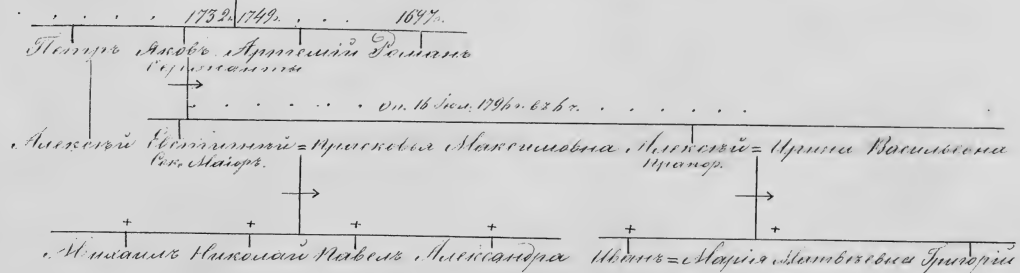 1732г. 1749г. 1697г.
Петръ Яковъ Артемій Романъ
Сержанты
оп. 16 Іюл. 1796г.
Алексѣй Евстигнѣй = Прасковья Максимовна Алексѣй = Ирина Васильевна
Сек. Маіоръ. Прапор.
+ + + + + +
Михаилъ Николай Павелъ Александра Иванъ = Марія Матвѣевна Григорій